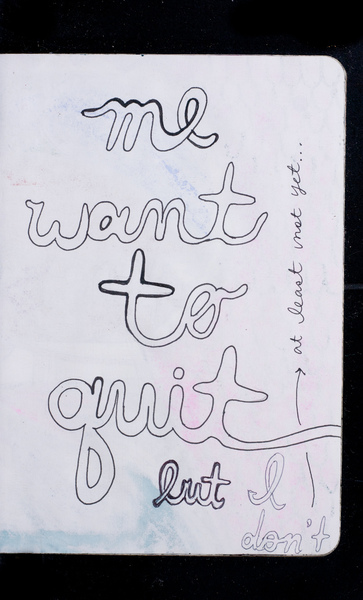 me
want
to
quit
but I
don't
at least not yet...